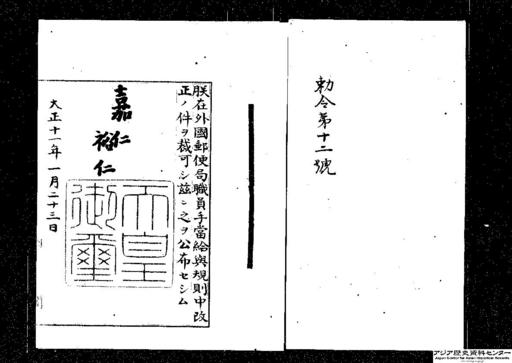 勅令第十二號
朕在外國郵便局職員手當給與規則中改
正ノ件ヲ裁可シ茲ニ之ヲ公布セシム
嘉仁
裕仁
天皇
御璽
大正十一年一月二十三日
アジア歴史資料センター
Japan Center for Asian Historical Records